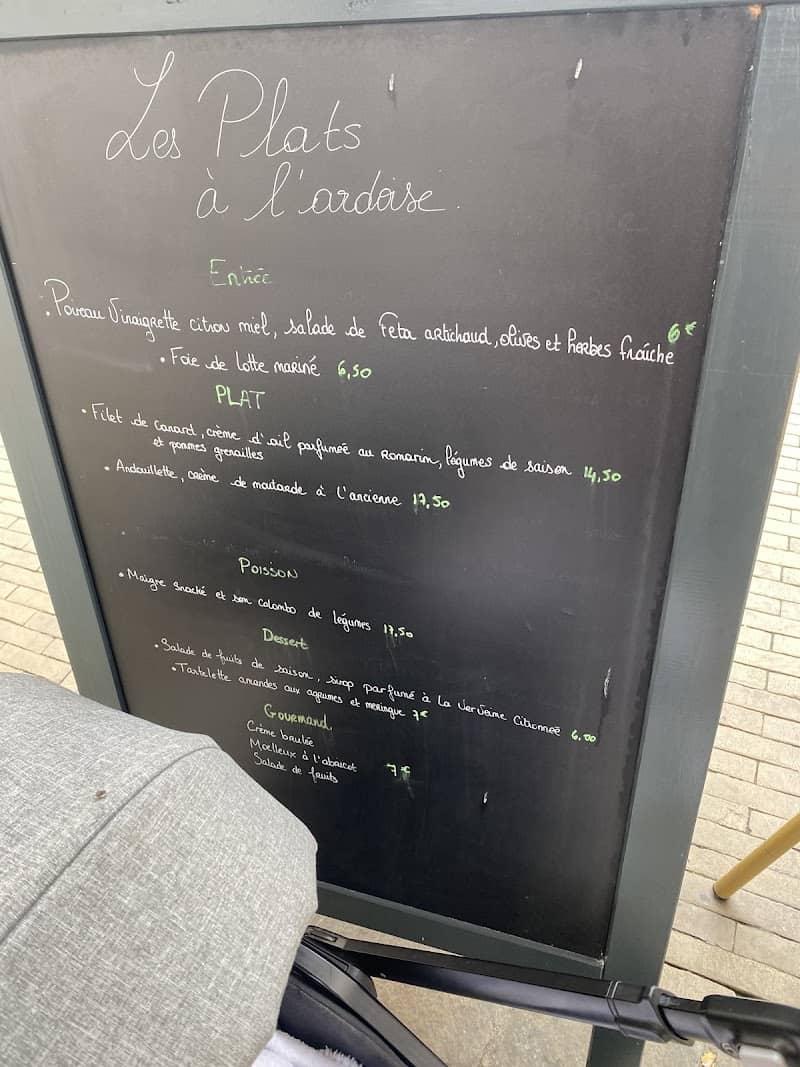 Les Plats
à l'ardoise
Entrée
• Poireau Vinaigrette citron miel, salade de Feta artichaud, olives et herbes fraîche 6€
• Foie de lotte mariné 6,50
PLAT
• Filet de canard, crème d'ail parfumée au Romarin, légumes de saison 14,50
et pommes grenailles
• Andouillette, crème de moutarde à l'ancienne 17,50
Poisson
• Maigre snacké et son colombo de légumes 17,50
Dessert
• Salade de fruits de saison, sirop parfumé à La Verveine Citronnée 6.00
• Tartelette amandes aux agrumes et meringue 7€
Gourmand
Crème brulée
Moelleux à l'abricot 7€
Salade de fruits